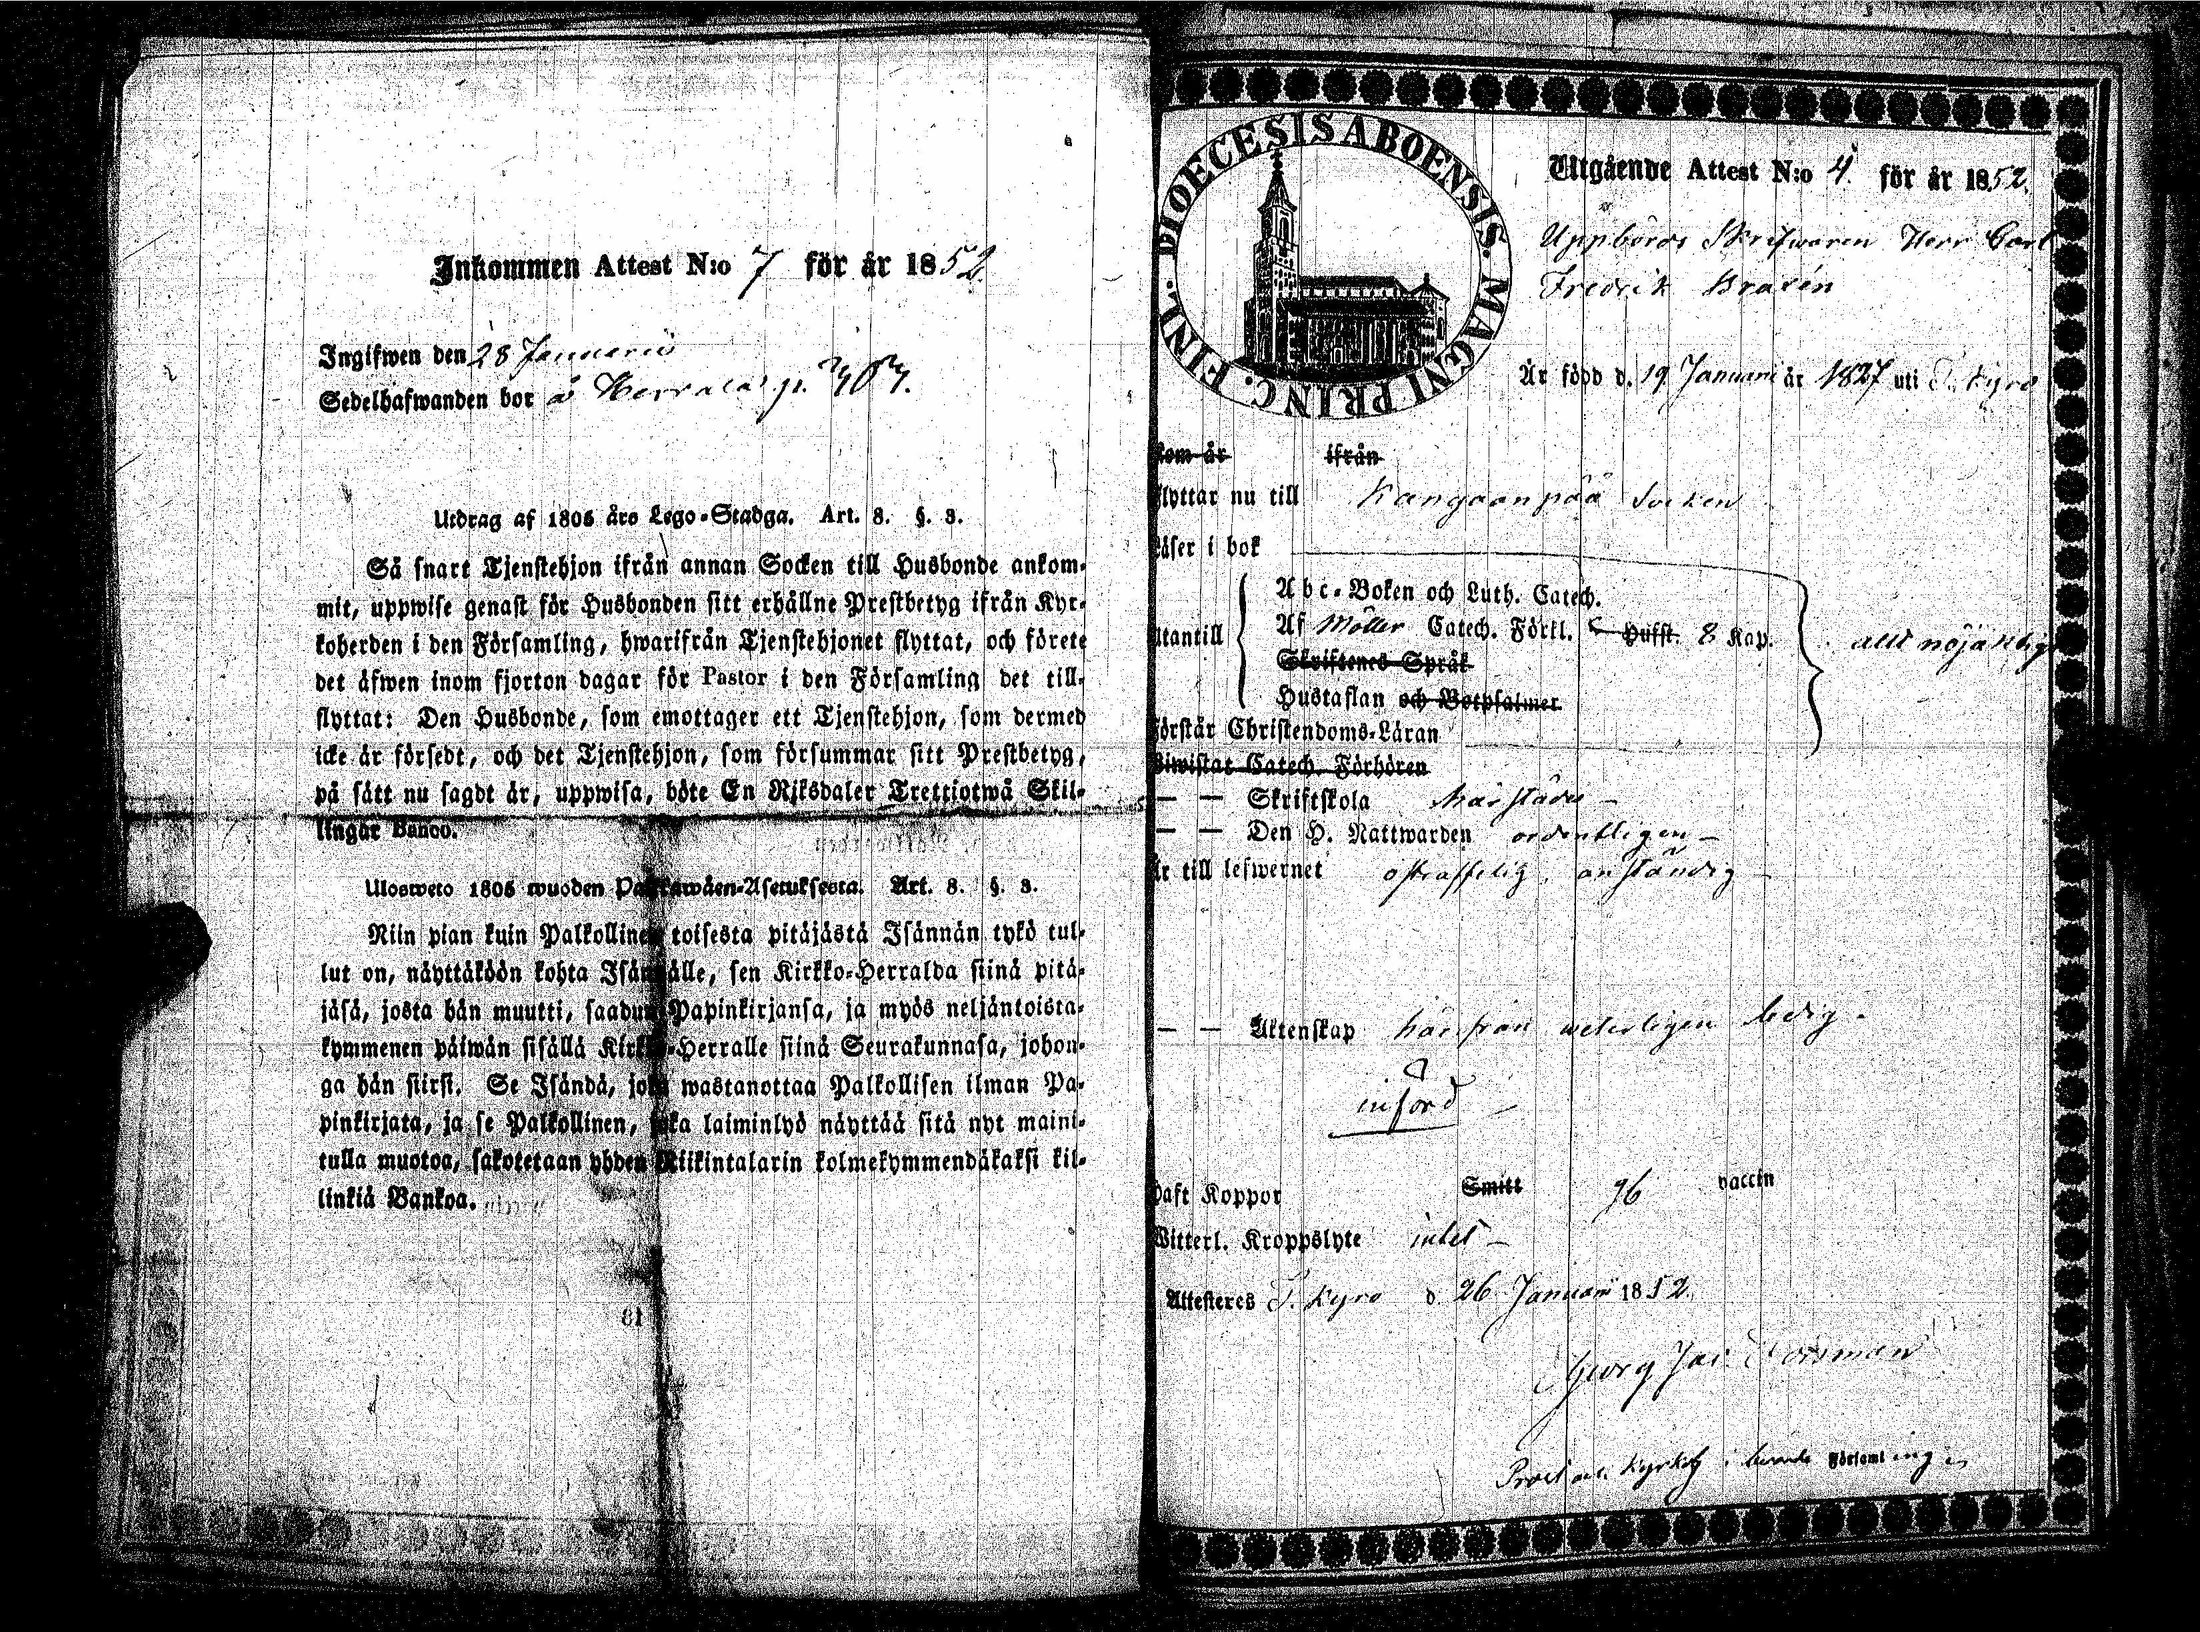 Inkommen Attest N:o 7 för år 1852.
Ingifwen den 28 Januarii
Sedelhafwanden bor å Herrala
Utdrag af 1805 års Lego-Stadga. Art. 8. §. 3.
Så snart Tjenstehjon ifrån annan Socken till Husbonde ankom-
mit, uppwise genast för Husbonden sitt erhållne Prestbetyg ifrån Kyr-
koherden i den Församling, hwarifrån Tjenstehjonet flyttat, och förete
det äfwen inom fjorton dagar för Pastor i den Församling det till-
flyttat: Den Husbonde, som emottager ett Tjenstehjon, som dermed
icke är försedt, och det Tjenstehjon, som försummar sitt Prestbetyg,
på sätt nu sagdt är, uppwisa, böte En Riksdaler Trettiotwå Skil-
lingar Banco.
Ulosweto 1805 wuoden Palkkawäen-Asetuksesta. Art. 8. §. 3.
Niin pian kuin Palkollinen toisesta pitäjästä Isännän tykö tul-
lut on, näyttäköön kohta Isännälle, sen Kirkko-Herralda siinä pitä-
jäsä, josta hän muutti, saadun Papinkirjansa, ja myös neljäntoista-
kymmenen päiwän sisällä Kirkko-Herralle siinä Seurakunnasa, johon-
ga hän siirsi. Se Isändä, joka wastanottaa Palkollisen ilman Pa-
pinkirjata, ja se Palkollinen, joka laiminlyö näyttää sitä nyt maini-
tulla muotoa, sakotetaan yhden Riikintalarin kolmekymmendäkaksi kil-
linkiä Bankoa.
81
DIOECESIS ABOENSIS. MAGNI PRINC. FINL.
Utgående Attest N:o 4. för år 1852.
Uppbörds Skrifwaren Herr Carl
Fredrik Brasén
Är född d. 19 Januari år 1827 uti T. Kyro
kom år ifrån
flyttar nu till Kangaanpää Socken
Läser i bok
Utantill
Abc-Boken och Luth. Catech.
Af Möller Catech. Förkl. Hufst. 8 Kap.
allt nöjaktigt
Skriftenes Språk
Hustaflan och Botpsalmer
Förstår Christendoms-Läran
Biwistat Catech. Förhören
— — Skriftskola härstädes —
— — Den H. Nattwarden ordentligen —
Är till lefwernet ostrafflig, anständig —
— — Äktenskap härifrån weterligen ledig.
införd
Haft Koppor Smitt vaccin
Witterl. Kroppslyte intet —
Attesteres T. Kyro d. 26 Januari 1852.
Georg Jac.
Prost och Kyrkoh. i Församling